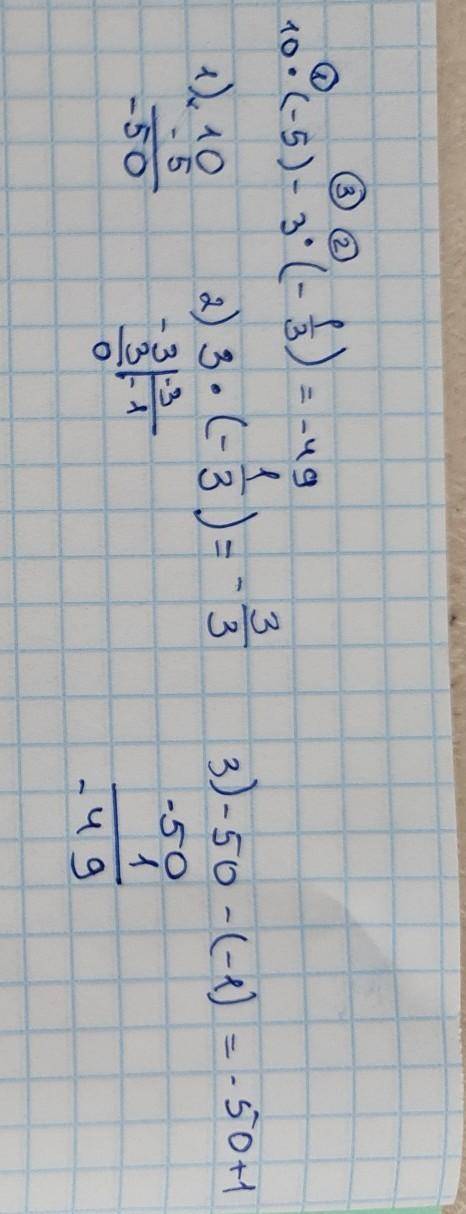 ① ③ ②
10 · (-5) - 3 · (- 1/3) = -49
1) × 10
-5
-50
2) 3 · (- 1/3) = - 3/3
-3 | -3
3 | -1
0
3) -50 - (-1) = -50+1
-50
1
-49